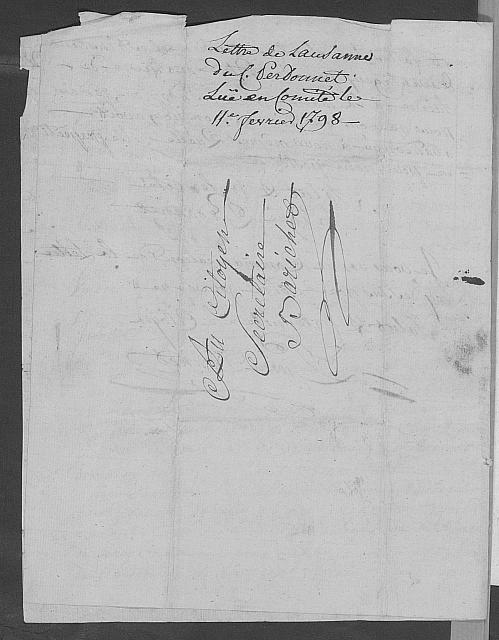 Lettre de Lausanne
du C. Perdonnet.
Luë en Comité le
11.e fevrier 1798 —
Au Citoyen
Secretaire
Barichet